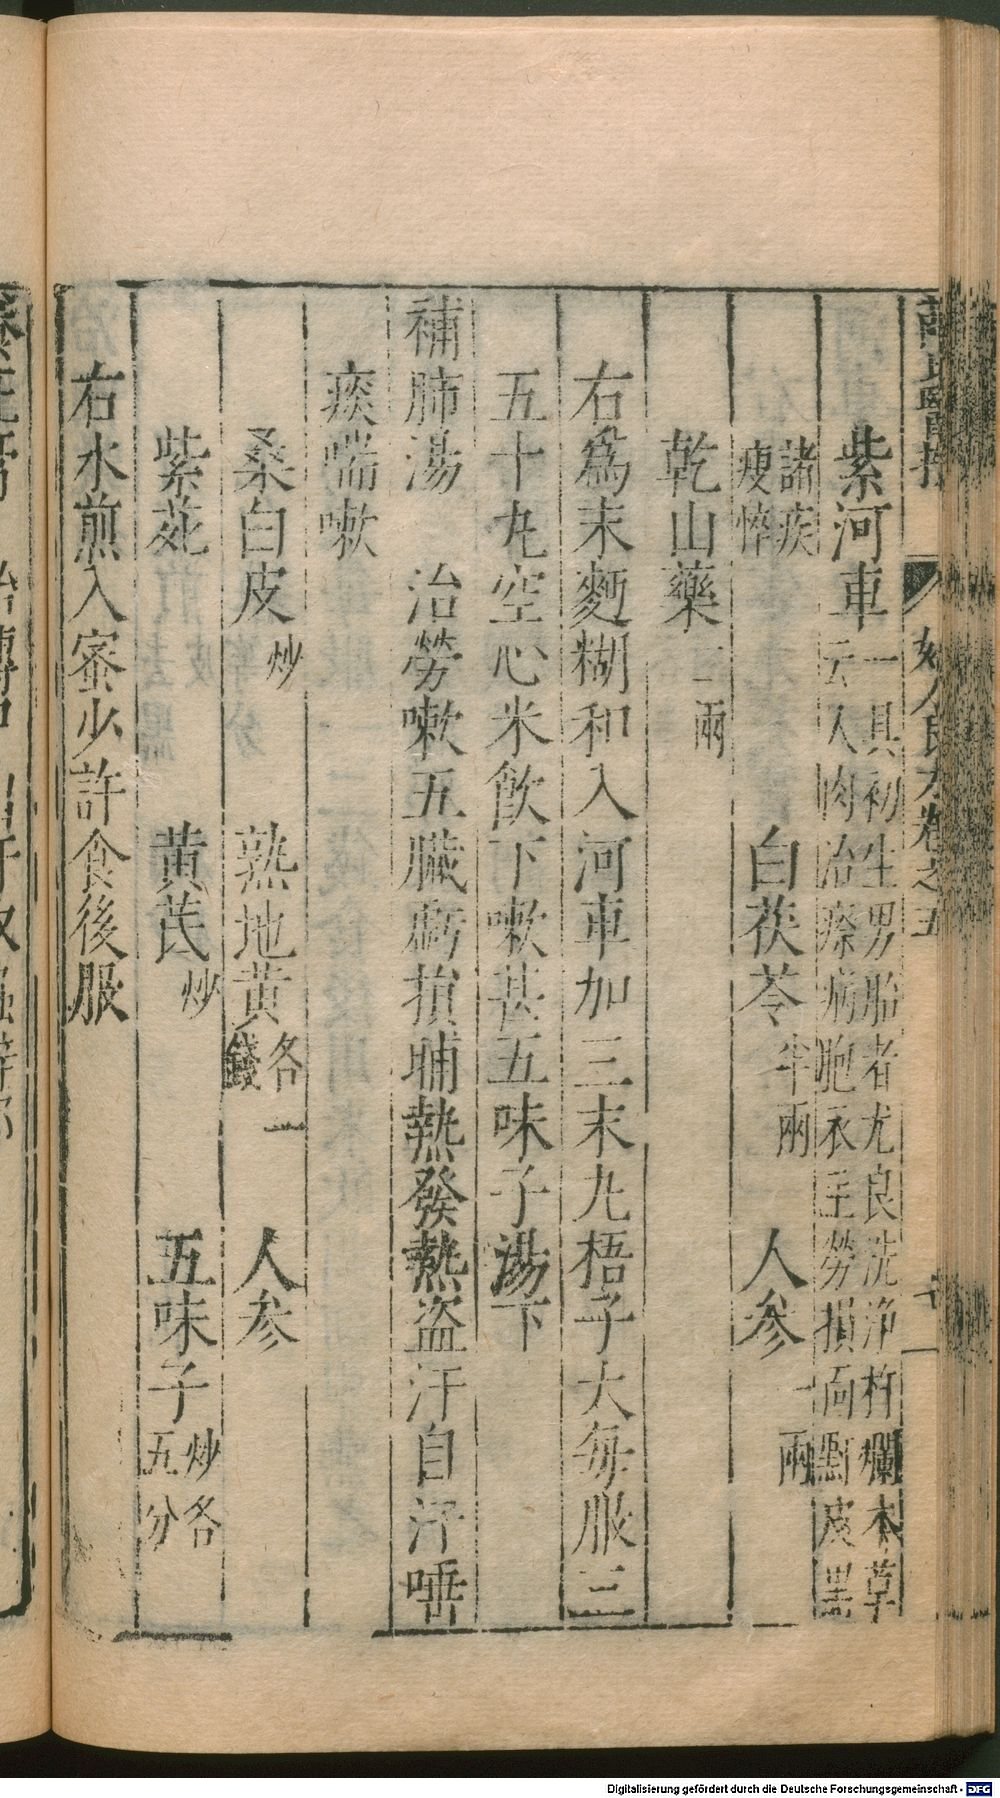 紫河車一具初生男胎者尤良洗淨杵爛本草云人肉治瘵病胞衣主勞損面䵟皮黑
諸疾瘦悴　白茯苓半兩　人參一兩
乾山藥二兩
右爲末麪糊和入河車加三末九梧子大每服三
五十九空心米飲下嗽甚五味子湯下
補肺湯　治勞嗽五臟虧損晡熱發熱盜汗自汗唾
痰喘嗽
桑白皮炒　熟地黃各一錢　人參
紫菀　黃芪炒　五味子炒各五分
右水煎入蜜少許食後服
婦人良方卷之五
Digitalisierung gefördert durch die Deutsche Forschungsgemeinschaft - DFG